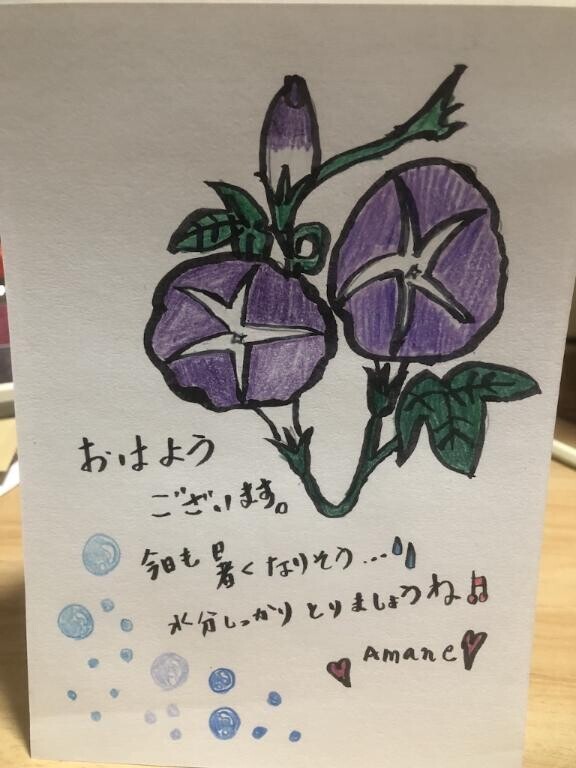 おはよう
ございます。
今日も暑くなりそう...
水分しっかりとりましょうね♫
Amane